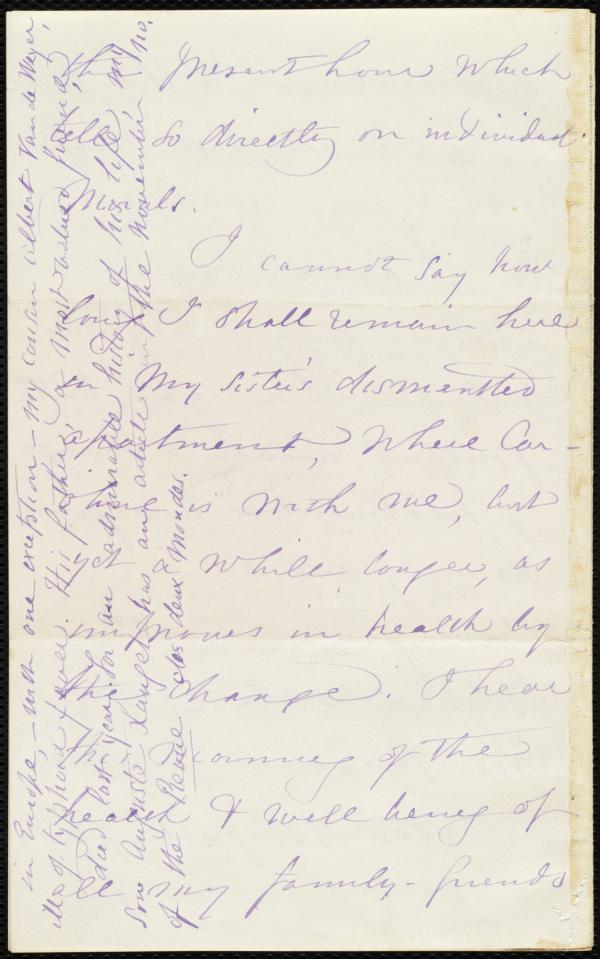 the present hour which
tells so directly on individual
morals.
I cannot say how
long I shall remain here
in my sister's dismantled
apartment, where Car-
oline is with me, but
yet a while longer, as
improves in health by
the change. I hear
this morning of the
health & well being of
all my family-friends
in Europe, - with one exception - my cousin Albert Van de Weyer,
of typhoid fever. His father, a most valued friend,
died last year, for an admirable history of his life, my
son Auguste Laugel has an article in the November no.
of the Revue des deux Mondes.